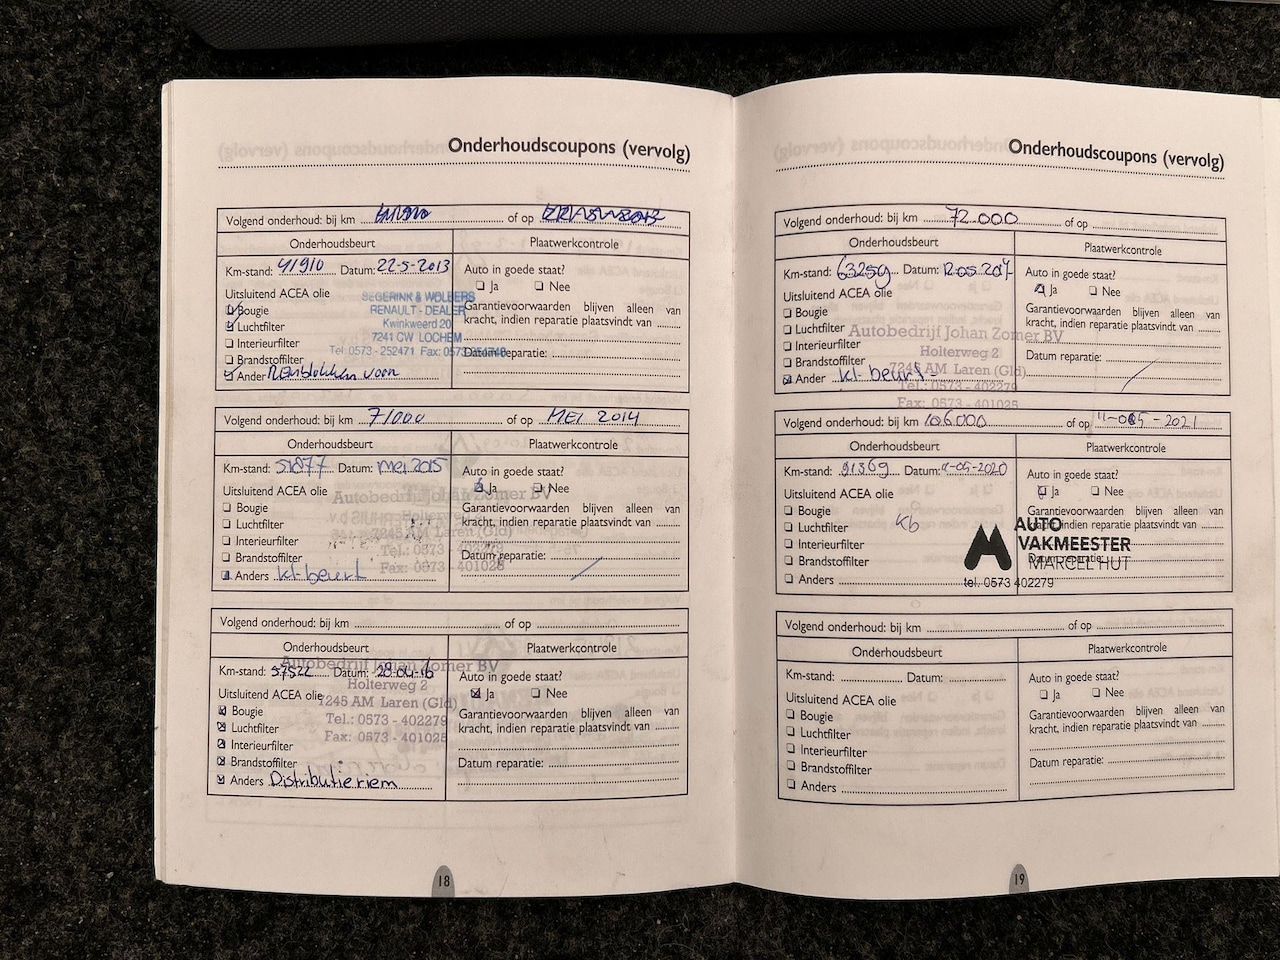 Onderhoudscoupons (vervolg)
Volgend onderhoud: bij km of op
Onderhoudsbeurt Plaatwerkcontrole
Km-stand: 41910 Datum: 22-5-2013 Auto in goede staat?
Ja Nee
Uitsluitend ACEA olie
SEGERINK & WOLBERS
RENAULT - DEALER
Kwinkweerd 20
7241 CW LOCHEM
Tel: 0573 - 252471 Fax: 0573
Bougie
Luchtfilter
Interieurfilter
Brandstoffilter
Ander Remblokken voor
Garantievoorwaarden blijven alleen van
kracht, indien reparatie plaatsvindt van
Datum reparatie:
Volgend onderhoud: bij km 71000 of op MEI 2014
Onderhoudsbeurt Plaatwerkcontrole
Km-stand: 51877 Datum: mei 2015 Auto in goede staat?
Ja Nee
Uitsluitend ACEA olie
Autobedrijf Johan Zomer BV
Tel.: 0573 - 402279
Fax: 0573 - 401028
Bougie
Luchtfilter
Interieurfilter
Brandstoffilter
Anders kl-beurt
Garantievoorwaarden blijven alleen van
kracht, indien reparatie plaatsvindt van
Datum reparatie:
Volgend onderhoud: bij km of op
Onderhoudsbeurt Plaatwerkcontrole
Km-stand: 57522 Datum: 28-04-16 Auto in goede staat?
Ja Nee
Uitsluitend ACEA olie
Autobedrijf Johan Zomer BV
Holterweg 2
7245 AM Laren (Gld)
Tel.: 0573 - 402279
Fax: 0573 - 401028
Bougie
Luchtfilter
Interieurfilter
Brandstoffilter
Anders Distributieriem
Garantievoorwaarden blijven alleen van
kracht, indien reparatie plaatsvindt van
Datum reparatie:
18
Onderhoudscoupons (vervolg)
Volgend onderhoud: bij km 72.000 of op
Onderhoudsbeurt Plaatwerkcontrole
Km-stand: 63259 Datum: Auto in goede staat?
Ja Nee
Uitsluitend ACEA olie
Autobedrijf Johan Zomer BV
Holterweg 2
7245 AM Laren (Gld)
Tel.: 0573 - 402279
Fax: 0573 - 401028
Bougie
Luchtfilter
Interieurfilter
Brandstoffilter
Ander kl-beurt
Garantievoorwaarden blijven alleen van
kracht, indien reparatie plaatsvindt van
Datum reparatie:
Volgend onderhoud: bij km 106000 of op 11-05-2021
Onderhoudsbeurt Plaatwerkcontrole
Km-stand: 91369 Datum: 11-05-2020 Auto in goede staat?
Ja Nee
Uitsluitend ACEA olie
Bougie
Luchtfilter Kb
Interieurfilter
Brandstoffilter
Anders
Garantievoorwaarden blijven alleen van
kracht, indien reparatie plaatsvindt van
Datum reparatie:
AUTO
VAKMEESTER
MARCEL HUT
tel. 0573 402279
Volgend onderhoud: bij km of op
Onderhoudsbeurt Plaatwerkcontrole
Km-stand: Datum: Auto in goede staat?
Ja Nee
Uitsluitend ACEA olie
Bougie
Luchtfilter
Interieurfilter
Brandstoffilter
Anders
Garantievoorwaarden blijven alleen van
kracht, indien reparatie plaatsvindt van
Datum reparatie:
19